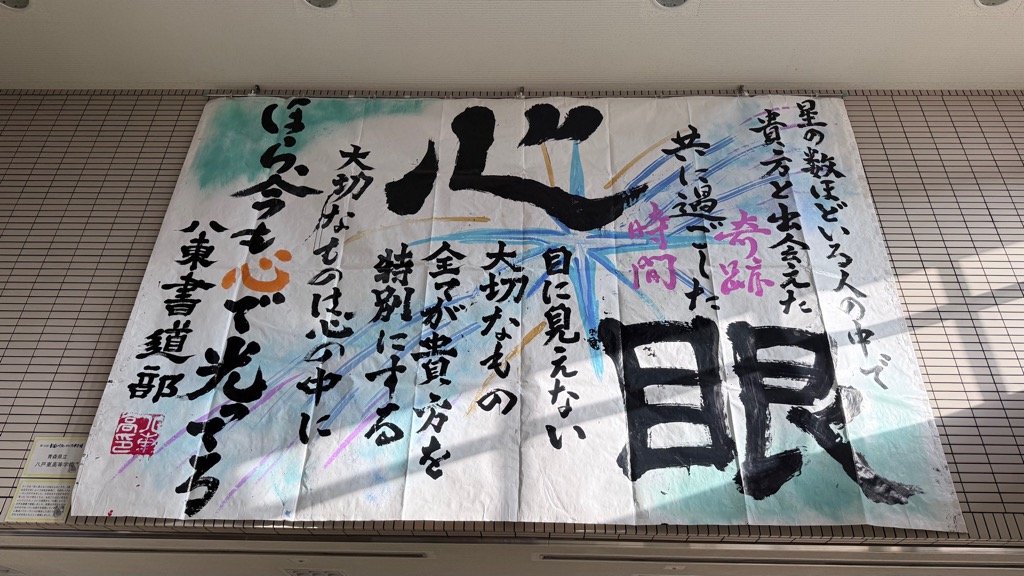 星の数ほどいる人の中で
貴方と出会えた
奇跡
共に過ごした
時間
心眼
目に見えない
大切なもの
全てが貴方を
特別にする
大切なものは心の中に
ほら今も心で光ってる
八東書道部
八東高印
青森県立
八戸東高等学校